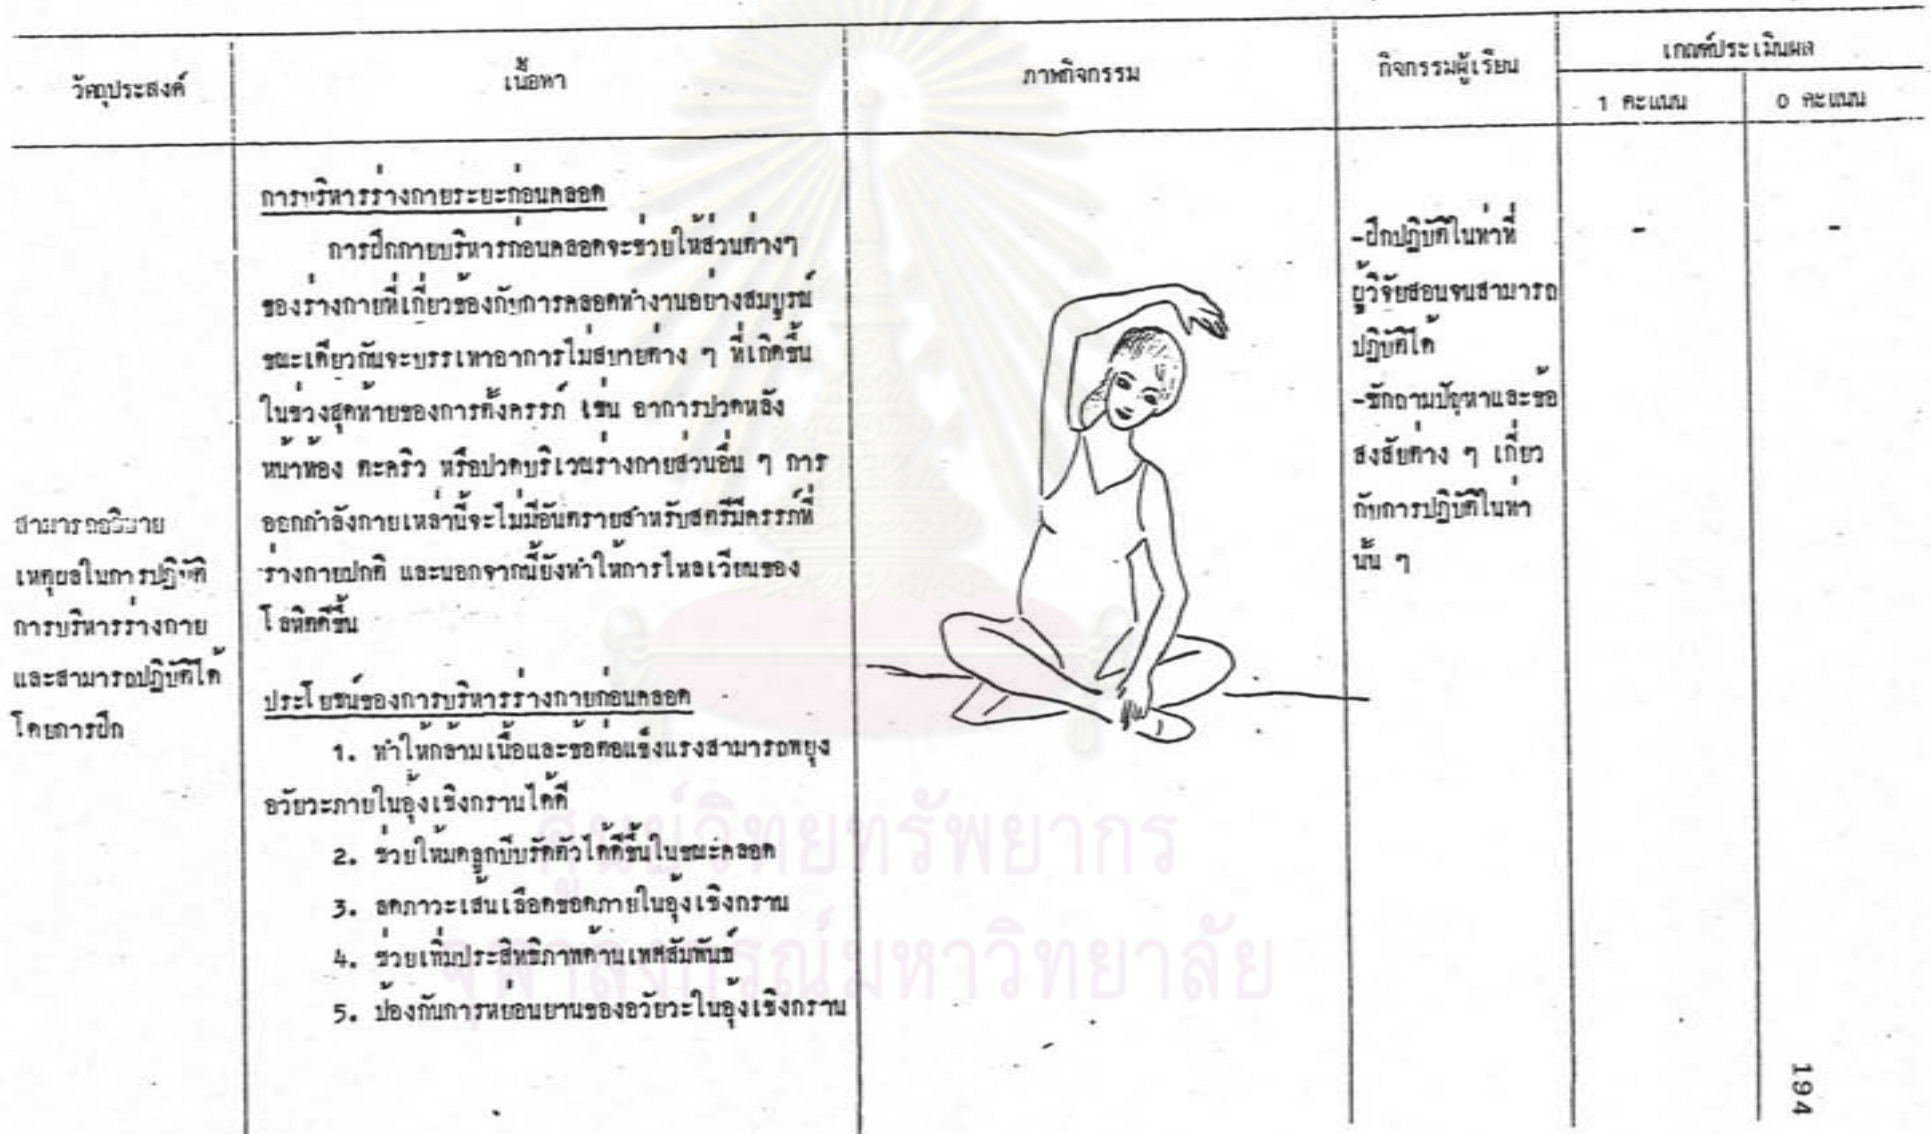 วัตถุประสงค์
เนื้อหา
ภาพกิจกรรม
กิจกรรมผู้เรียน
เกณฑ์ประเมินผล
1 คะแนน
0 คะแนน
สามารถอธิบาย
เหตุผลในการปฏิบัติ
การบริหารร่างกาย
และสามารถปฏิบัติได้
โดยการฝึก
การบริหารร่างกายระยะก่อนคลอด
การฝึกกายบริหารก่อนคลอดจะช่วยให้ส่วนต่างๆ
ของร่างกายที่เกี่ยวข้องกับการคลอดทำงานอย่างสมบูรณ์
ขณะเดียวกันจะบรรเทาอาการไม่สบายต่าง ๆ ที่เกิดขึ้น
ในช่วงสุดท้ายของการตั้งครรภ์ เช่น อาการปวดหลัง
หน้าท้อง ตะคริว หรือปวดบริเวณร่างกายส่วนอื่น ๆ การ
ออกกำลังกายเหล่านี้จะไม่มีอันตรายสำหรับสตรีมีครรภ์ที่
ร่างกายปกติ และนอกจากนี้ยังทำให้การไหลเวียนของ
โลหิตดีขึ้น
ประโยชน์ของการบริหารร่างกายก่อนคลอด
1. ทำให้กล้ามเนื้อและข้อต่อแข็งแรงสามารถพยุง
อวัยวะภายในอุ้งเชิงกรานได้ดี
2. ช่วยให้มดลูกบีบรัดตัวได้ดีขึ้นในขณะคลอด
3. ลดภาวะเส้นเลือดขอดภายในอุ้งเชิงกราน
4. ช่วยเพิ่มประสิทธิภาพด้านเพศสัมพันธ์
5. ป้องกันการหย่อนยานของอวัยวะในอุ้งเชิงกราน
-ฝึกปฏิบัติในท่าที่
ผู้วิจัยสอนจนสามารถ
ปฏิบัติได้
-ซักถามปัญหาและข้อ
สงสัยต่าง ๆ เกี่ยว
กับการปฏิบัติในท่า
นั้น ๆ
-
-
ศูนย์วิทยทรัพยากร
จุฬาลงกรณ์มหาวิทยาลัย
194